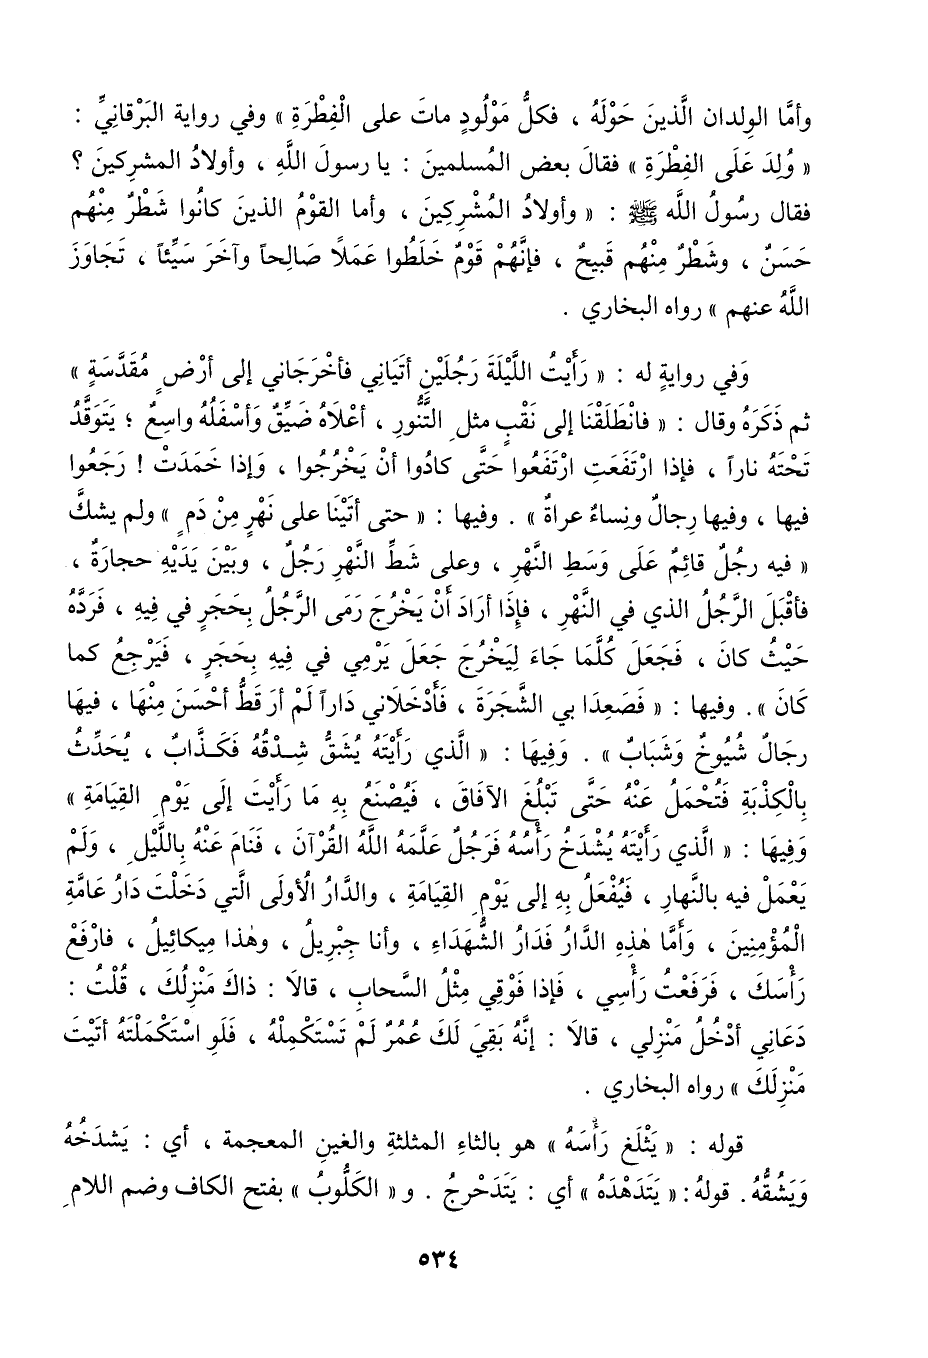 وأمَّا الوِلدان الَّذينَ حَوْلَهُ ، فكلُّ مَوْلُودٍ ماتَ على الْفِطْرَةِ » وفي رواية البَرْقانِيِّ :
« وُلِدَ عَلَى الفِطْرَةِ » فقالَ بعض المُسلمينَ : يا رسولَ اللَّهِ ، وأولادُ المشركينَ ؟
فقال رسُولُ اللَّه ﷺ : « وأولادُ المُشْرِكِينَ ، وأما القوْمُ الذينَ كانُوا شَطْرٌ مِنْهُم
حَسَنٌ ، وشَطْرٌ مِنْهُم قَبيحٌ ، فإنَّهُمْ قَوْمٌ خَلَطُوا عَمَلًا صَالِحاً وآخَرَ سَيِّئاً ، تَجَاوَزَ
اللَّهُ عنهم » رواه البخاري .
وَفي روايةٍ له : « رَأَيْتُ اللَّيْلَةَ رَجُلَيْنِ أتَيَانِي فأخْرَجَاني إلى أرْضٍ مُقَدَّسَةٍ »
ثم ذَكَرَهُ وقال : « فانْطَلَقْنَا إلى نَقْبٍ مثلِ التَّنُّورِ ، أعْلَاهُ ضَيِّقٌ وَأسْفَلُهُ واسِعٌ ؛ يَتَوَقَّدُ
تَحْتَهُ ناراً ، فإذا ارْتَفَعَتِ ارْتَفَعُوا حَتَّى كادُوا أنْ يَخْرُجُوا ، وَإذا خَمَدَتْ ! رَجَعُوا
فيها ، وفيها رِجالٌ ونِساءٌ عراةٌ » . وفيها : « حتى أتَيْنَا على نَهْرٍ مِنْ دَمٍ » ولم يشكَّ
« فيه رجُلٌ قائِمٌ عَلَى وَسَطِ النَّهْرِ ، وعلى شَطِّ النَّهْرِ رَجُلٌ ، وبَيْنَ يَدَيْهِ حجارَةٌ ،
فأقْبَلَ الرَّجُلُ الذي في النَّهْرِ ، فإِذَا أرَادَ أَنْ يَخْرُجَ رَمَى الرَّجُلُ بِحَجَرٍ في فِيهِ ، فَرَدَّهُ
حَيْثُ كانَ ، فَجَعَلَ كُلَّمَا جَاءَ لِيَخْرُجَ جَعَلَ يَرْمِي في فِيهِ بِحَجَرٍ ، فَيَرْجِعُ كما
كَانَ ». وفيها : « فَصَعِدَا بي الشَّجَرَةَ ، فَأَدْخَلَاني دَاراً لَمْ أرَ قَطُّ أحْسَنَ مِنْهَا ، فيهَا
رجَالٌ شُيُوخٌ وَشَبَابٌ » . وَفِيهَا : « الَّذي رَأَيْتَهُ يُشَقُّ شِدْقُهُ فَكَذَّابٌ ، يُحَدِّثُ
بِالْكِذْبَةِ فَتُحْمَلُ عَنْهُ حَتَّى تَبْلُغَ الآفاقَ ، فَيُصْنَعُ بِهِ مَا رَأَيْتَ إلَى يَوْمِ القِيَامَةِ »
وَفِيهَا : « الَّذي رَأَيْتَهُ يُشْدَخُ رَأْسُهُ فَرَجُلٌ عَلَّمَهُ اللَّهُ القُرْآنَ ، فَنَامَ عَنْهُ بِاللَّيْلِ ، وَلَمْ
يَعْمَلْ فيه بالنَّهارِ ، فَيُفْعَلُ بِهِ إلى يَوْمِ القِيَامَةِ ، والدَّارُ الأُولَى الَّتي دَخَلْتَ دَارُ عَامَّةِ
الْمُؤْمِنِينَ ، وَأَمَّا هٰذِهِ الدَّارُ فَدَارُ الشُّهَدَاءِ ، وأنا جِبْرِيلُ ، وهٰذا مِيكائيلُ ، فارْفَعْ
رَأْسَكَ ، فَرَفَعْتُ رَأْسِي ، فَإذا فَوْقِي مِثْلُ السَّحابِ ، قالَا : ذاكَ مَنْزِلُكَ ، قُلْتُ :
دَعَانِي أدْخُلُ مَنْزِلي ، قالَا : إنَّهُ بَقِيَ لَكَ عُمُرٌ لَمْ تَسْتَكْمِلْهُ ، فَلَوِ اسْتَكْمَلْتَهُ أتَيْتَ
مَنْزِلَكَ » رواه البخاري .
قوله : « يَثْلَغ رَأْسَهُ » هو بالثاءِ المثلثةِ والغينِ المعجمة ، أي : يَشدَخُهُ
وَيَشُقُّهُ. قولهُ: « يَتَدَهْدَهُ » أي : يَتَدَحْرجُ . و « الكَلُّوبُ » بفتح الكاف وضم اللامِ
٥٣٤